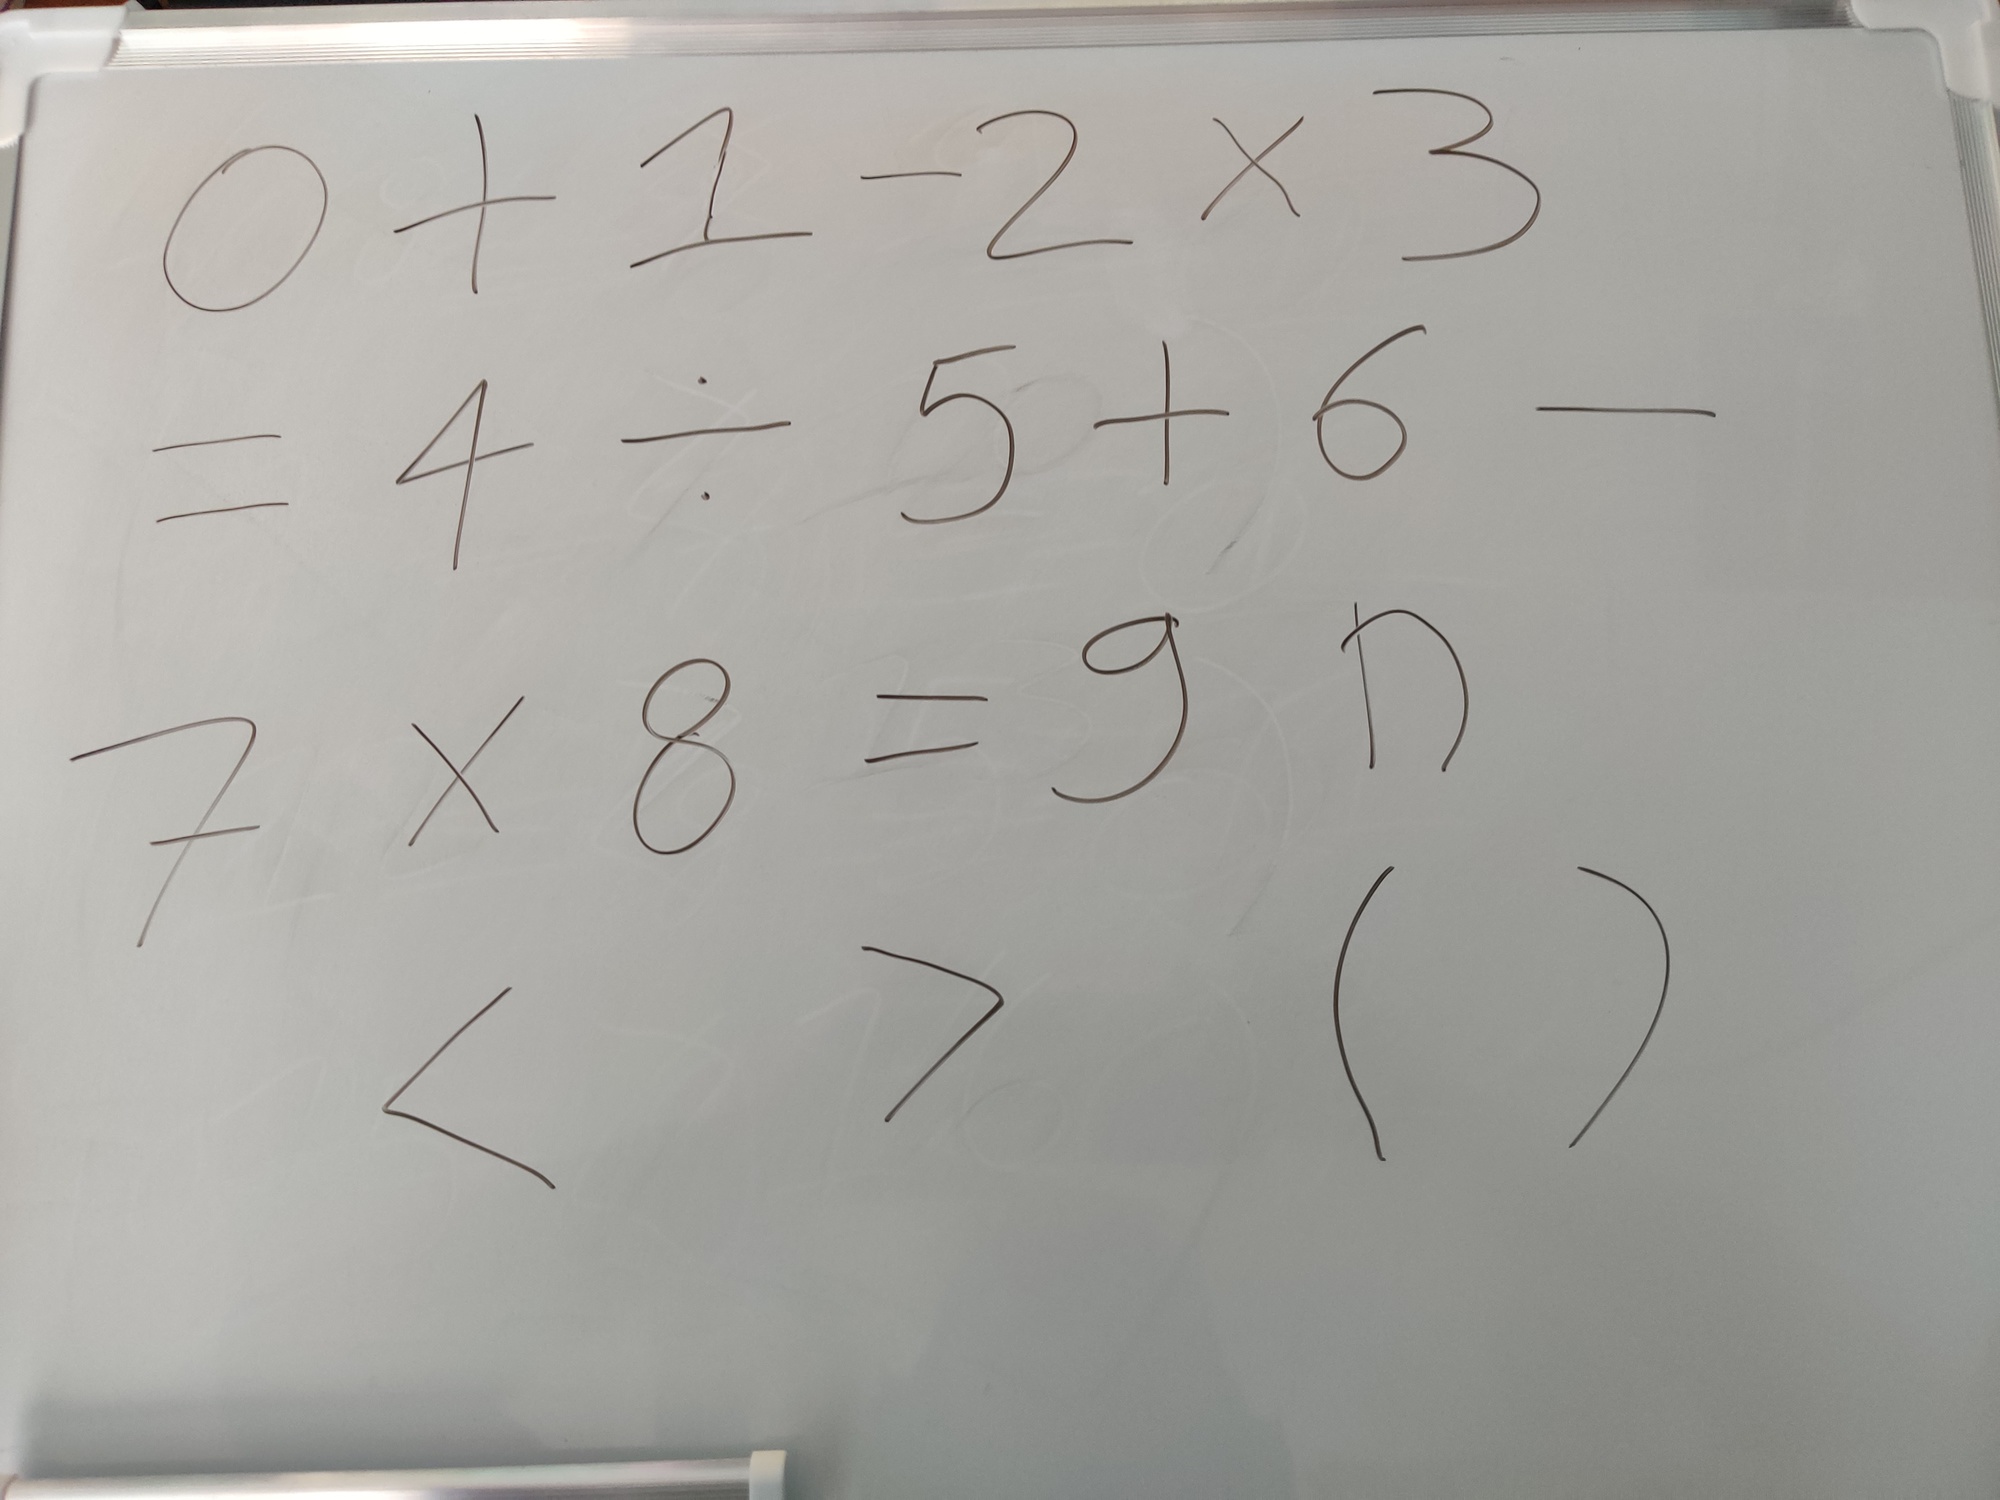 0 + 1 - 2 × 3
= 4 ÷ 5 + 6 -
7 × 8 = 9 n
< > ( )